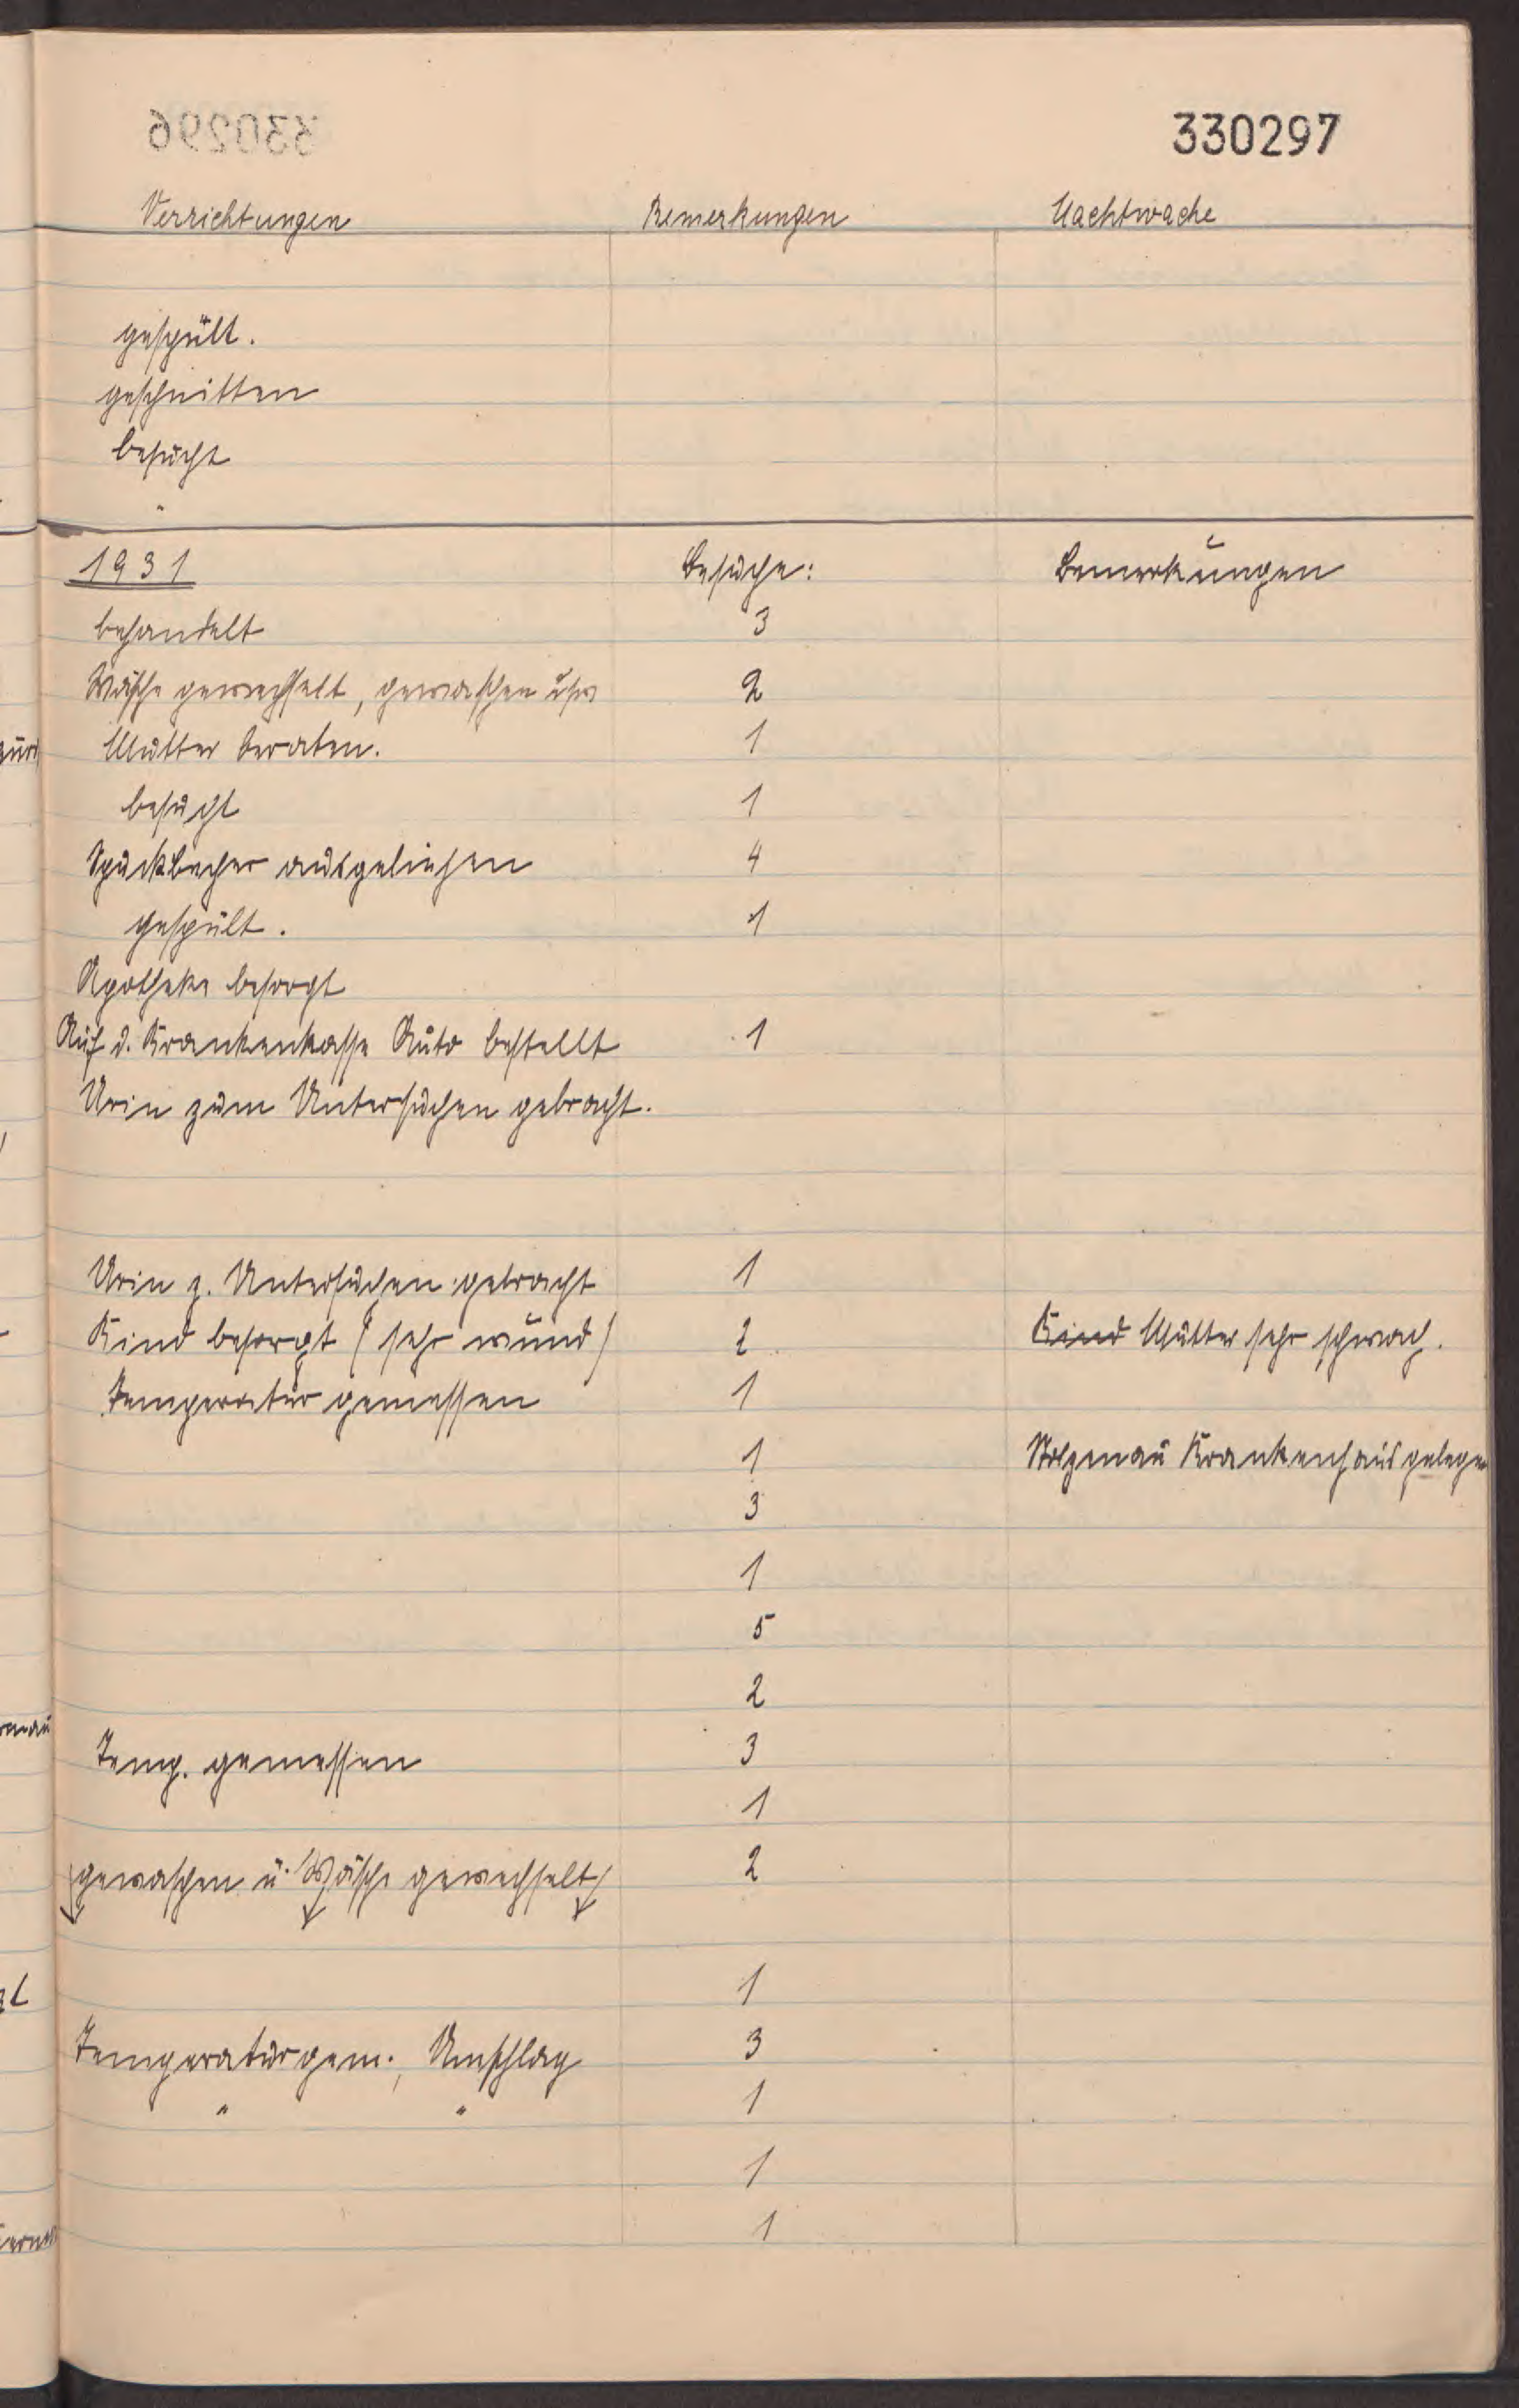 330296
330297
Verrichtungen Bemerkungen Nachtwache
gespült.
geschnitten
besucht
"
1931 Besuche: Bemerkungen
behandelt 3
Wäsche gewechselt, gewaschen usw 2
Mutter beraten. 1
besucht 1
Spuckbecher ausgeliehen 4
gespült. 1
Apotheke besorgt
Auf d. Krankenkasse Auto bestellt 1
Urin zum Untersuchen gebracht.
Urin z. Untersuchen gebracht 1
Kind besorgt (sehr wund) 2 Kind Mutter sehr schwach.
Temperatur gemessen 1
1 Stolzenau Krankenhaus gelegen
3
1
5
2
Temp. gemessen 3
1
gewaschen u. Wäsche gewechselt 2
1
Temperatur gem., Umschlag 3
" " 1
1
1